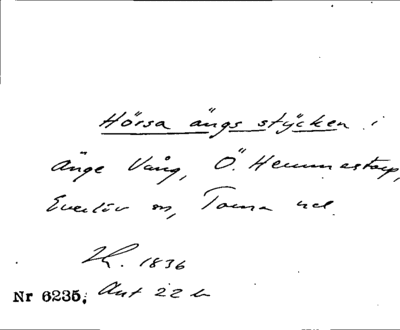 Hörsa ängs stÿcken i
Änge Vång, Ö. Hemmestorp,
Everlöv sn, Torna hd.
1836
Nr 6235; Akt 22 b